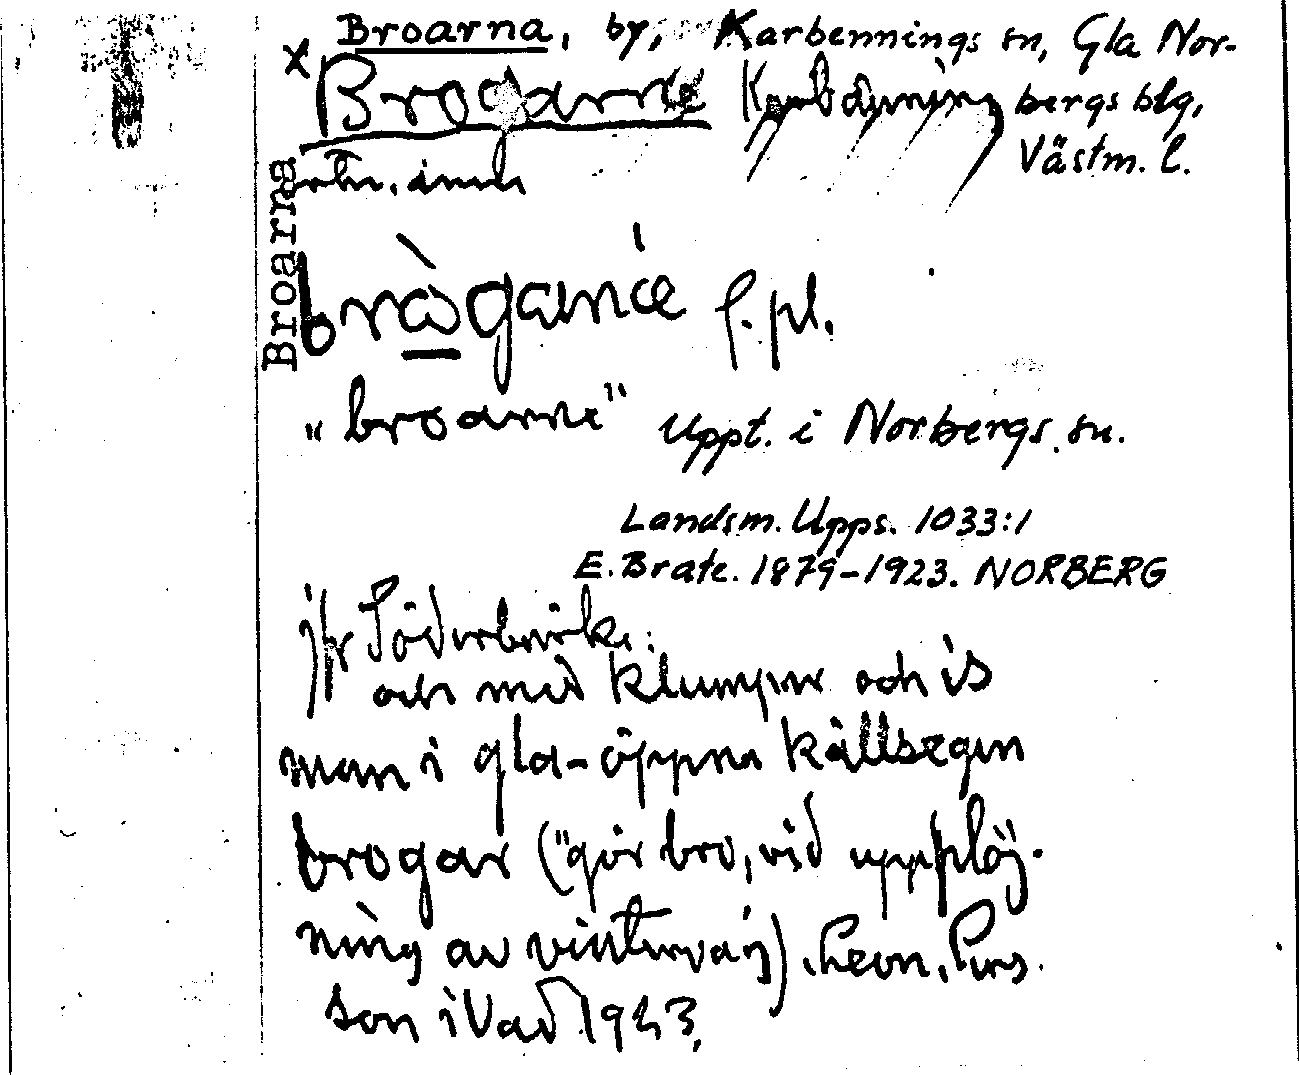 Broarna, by, Karbennings sn, Gla Nor-
x Brogarne Karbenning bergs blg,
Västm. l.
Broarna
brògarne f. pl.
"broarne" Uppt. i Norbergs sn.
Landsm. Upps. 1033:1
E. Brate. 1879-1923. NORBERG
jfr Söderbärke:
och med klumpar och is
man i gla-öppna källsegen
brogar ("gör bro, vid upplöj-
ning av vinterväg). Leon. Pers
son i Vad 1923.